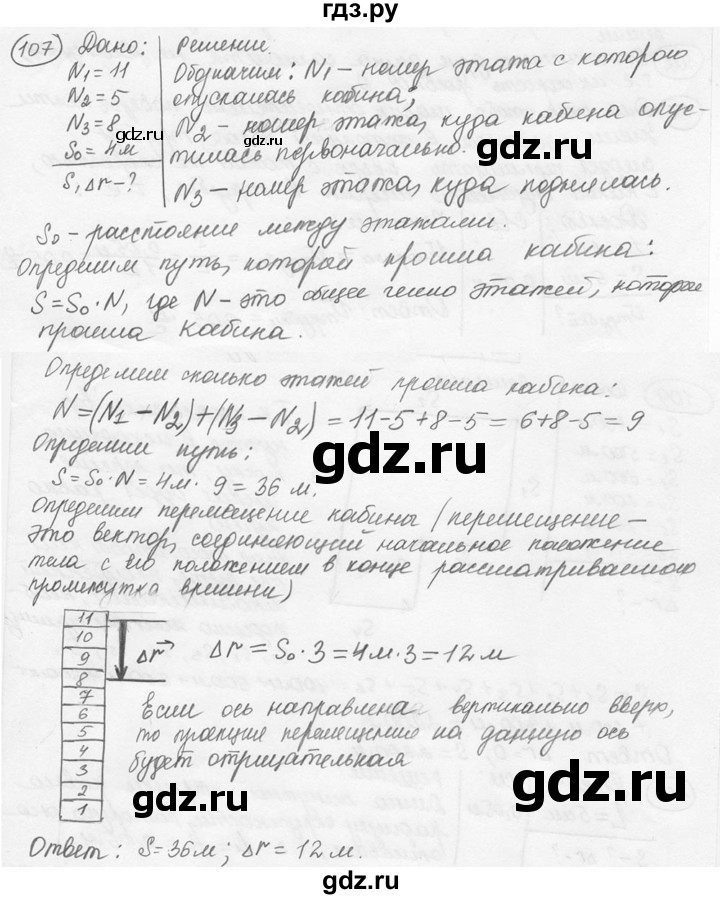 гдз.ру
107 Дано: Решение
N₁ = 11 Обозначим: N₁ – номер этажа с которого
N₂ = 5 опускалась кабина;
N₃ = 8 N₂ номер этажа, куда кабина опус-
S₀ = 4м тилась первоначально.
S, Δr – ? N₃ – номер этажа, куда поднялась.
gdz.ru
gdz.ru
gdz.ru
S₀ – расстояние между этажами.
Определим путь, который прошла кабина:
S = S₀ · N, где N – это общее число этажей, которое
прошла кабина.
Определим сколько этажей прошла кабина:
N = (N₁ – N₂) + (N₃ – N₂) = 11 – 5 + 8 – 5 = 6 + 8 – 5 = 9
Определим путь:
gdz.ru
gdz.ru
S = S₀ · N = 4м · 9 = 36 м.
Определим перемещение кабины (перемещение –
это вектор, соединяющий начальное положение
тела с его положением в конце рассматриваемого
промежутка времени)
11
10
9 Δr→ Δr = S₀ · 3 = 4м · 3 = 12 м
8
7 Если ось направлена вертикально вверх,
6
5 то проекция перемещения на данную ось
4 будет отрицательная
3
2
1
gdz.ru
gdz.ru
Ответ: S = 36м; Δr = 12 м.
gdz.ru
gdz.ru
gdz.ru